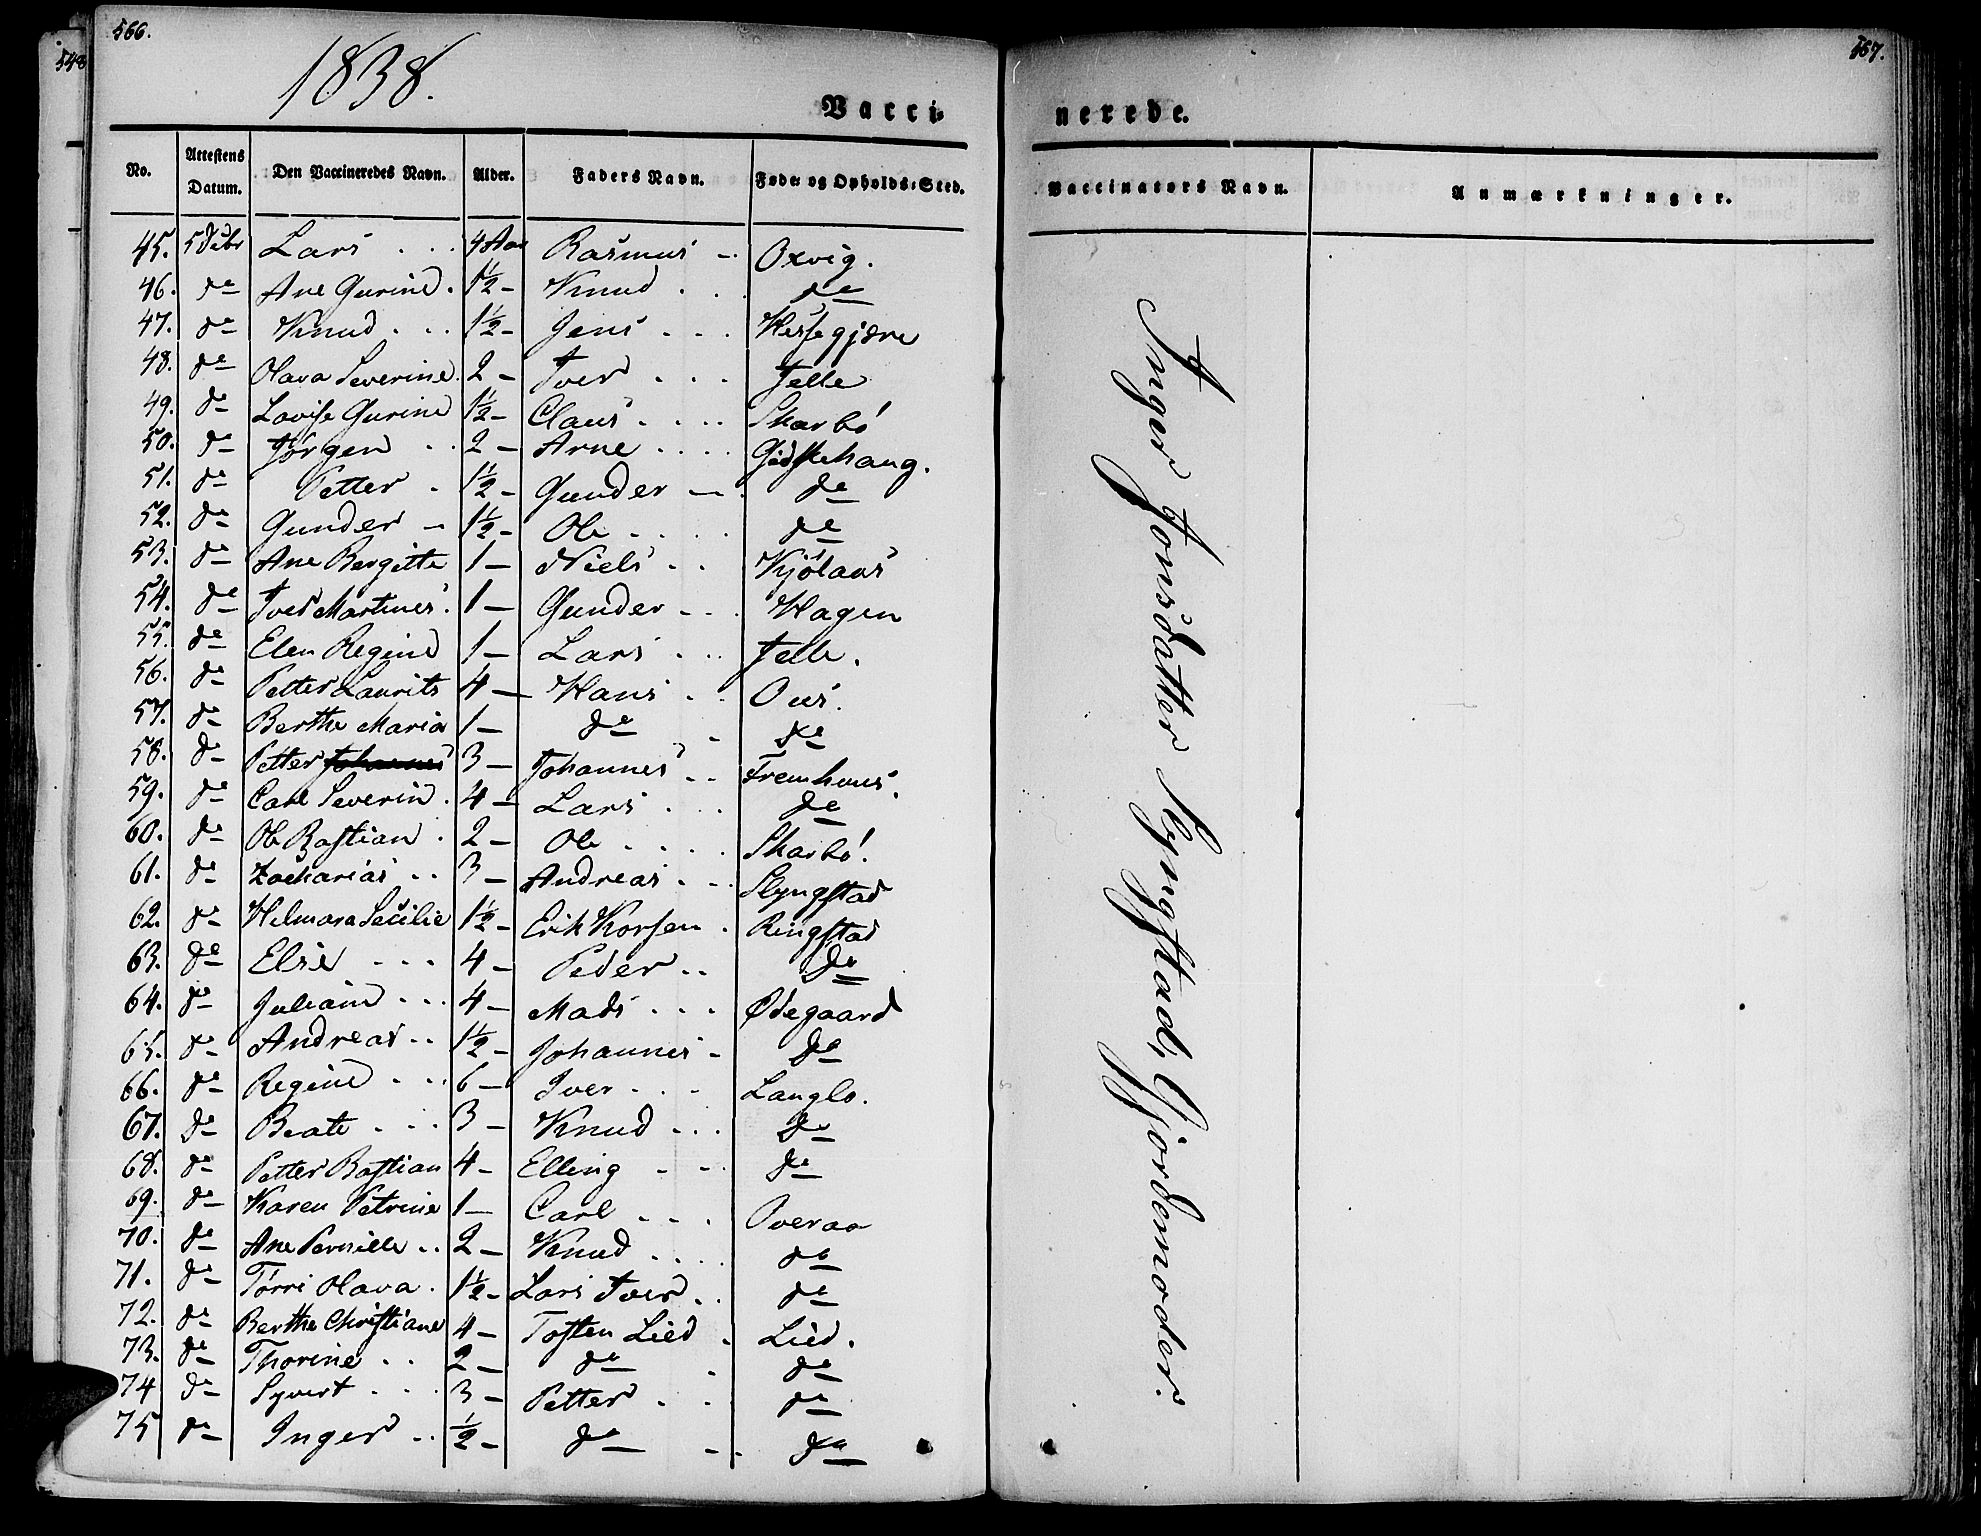 566.
548
1838.
Vacci-
No. Attestens Datum. Den Vaccineredes Navn. Alder. Faders Navn. Føde- og Opholds-Sted.
45. 5 Lars 4 Aar Rasmus Oxvig.
46. do Ane Gurine 1½ - Knud do
47. do Knud 1½ - Jens Hessegjære
48. do Olava Severine 2 - Iver Jelle
49. do Lovise Gurine 1½ - Claus Skarbó
50. do Jörgen 2 - Arne Gidskehaug.
51. do Petter 1½ - Gunder do
52. do Gunder 1½ - Ole do
53. do Ane Bergitte 1 - Niels Kjölaas
54. do Iver Martinus 1 - Gunder Hagen
55. do Elen Regine 1 - Lars Jelle.
56. do Petter Laurits 4 - Hans Ous.
57. do Berthe Maria 1 - do do
58. do Petter Johannes 3 - Johannes Fremhuus.
59. do Carl Severin 4 - Lars do
60. do Ole Bastian 2 - Ole Skarbó.
61. do Zacharias 3 - Andreas Slyngstad
62. do Helmara Secilie 1½ - Erik Korsen Ringstad
63. do Elsie 4 - Peder do
64. do Juliane 4 - Mads Ødegaard
65. do Andreas 1½ - Johannes do
66. do Regine 6 - Iver Langlo.
67. do Beate 3 - Knud do
68. do Petter Bastian 4 - Elling do
69. do Karen Petrine 1 - Carl Overaa
70. do Ane Pernille 2 - Knud do
71. do Törri Olava 1½ - Lars Iver do
72. do Berthe Christiane 4 - Tosten Lied Lied.
73. do Thorine 2 - do do
74 do Syvert 3 - Petter do
75 do Inger ½ - do do
567.
nerede.
Vaccinators Navn. Anmærkninger.
Inger Jonsdatter Slyngstad, Gjordemoder.